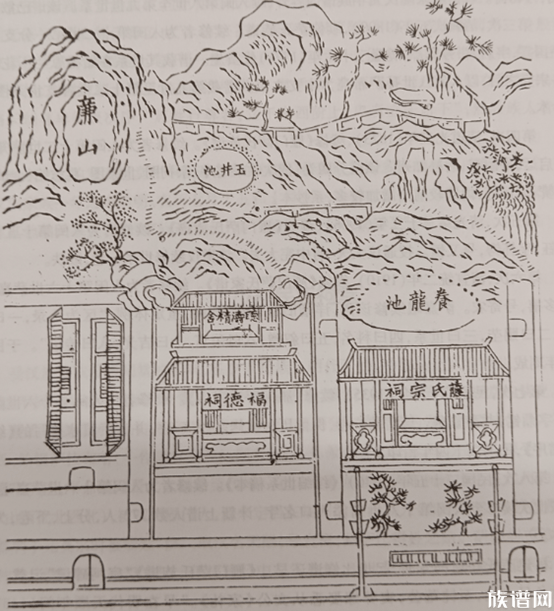 廉山
玉井池
養龍池
精舍
福德祠
薩氏宗祠
族谱网